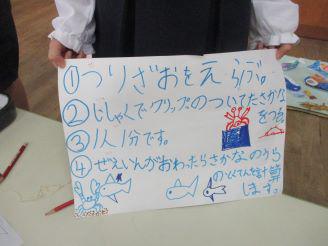 ①つりざおをえらぶ。
②じしゃくでクリップのついてたさかな
をつる
③1人1分です。
④ぜえいんがおわったらさかなのうら
のとくてんを計算
します。